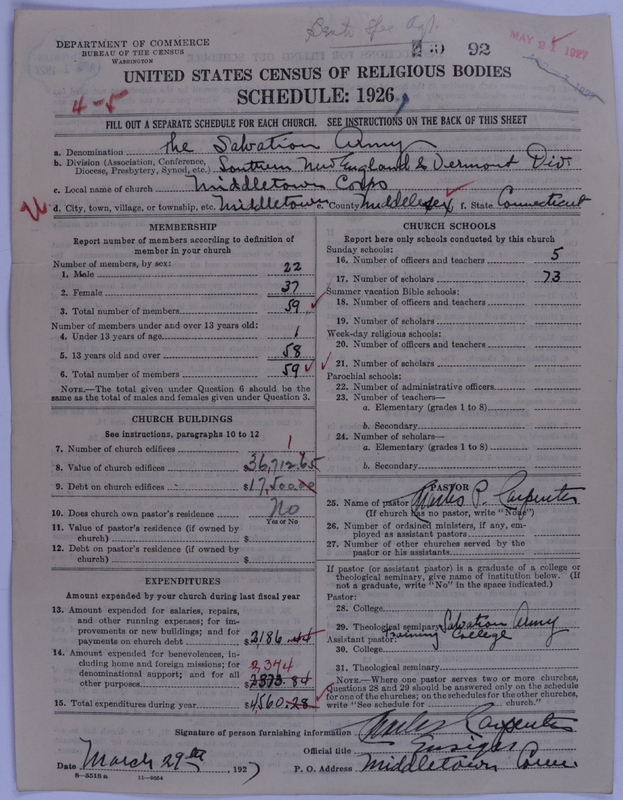 92
MAY 21 1927
DEPARTMENT OF COMMERCE
BUREAU OF THE CENSUS
WASHINGTON
UNITED STATES CENSUS OF RELIGIOUS BODIES
SCHEDULE: 1926
4-5
FILL OUT A SEPARATE SCHEDULE FOR EACH CHURCH. SEE INSTRUCTIONS ON THE BACK OF THIS SHEET
a. Denomination The Salvation Army
b. Division (Association, Conference, Diocese, Presbytery, Synod, etc.) Southern New England & Vermont Div.
c. Local name of church Middletown Corps
d. City, town, village, or township, etc. Middletown e. County Middlesex f. State Connecticut
MEMBERSHIP
Report number of members according to definition of
member in your church
Number of members, by sex:
1. Male 22
2. Female 37
3. Total number of members 59
Number of members under and over 13 years old:
4. Under 13 years of age 1
5. 13 years old and over 58
6. Total number of members 59
NOTE.—The total given under Question 6 should be the
same as the total of males and females given under Question 3.
CHURCH BUILDINGS
See instructions, paragraphs 10 to 12
7. Number of church edifices 1
8. Value of church edifices $36,712.65
9. Debt on church edifices $17,500.00
10. Does church own pastor's residence No
Yes or No
11. Value of pastor's residence (if owned by
church) $
12. Debt on pastor's residence (if owned by
church) $
EXPENDITURES
Amount expended by your church during last fiscal year
13. Amount expended for salaries, repairs,
and other running expenses; for im-
provements or new buildings; and for
payments on church debt $2186.44
14. Amount expended for benevolences, in-
cluding home and foreign missions; for
denominational support; and for all
other purposes 2,374 $2373.84
15. Total expenditures during year $4,560.28
CHURCH SCHOOLS
Report here only schools conducted by this church
Sunday schools:
16. Number of officers and teachers 5
17. Number of scholars 73
Summer vacation Bible schools:
18. Number of officers and teachers
19. Number of scholars
Week-day religious schools:
20. Number of officers and teachers
21. Number of scholars
Parochial schools:
22. Number of administrative officers
23. Number of teachers—
a. Elementary (grades 1 to 8)
b. Secondary
24. Number of scholars—
a. Elementary (grades 1 to 8)
b. Secondary
PASTOR
25. Name of pastor Charles P. Carpenter
(If church has no pastor, write "None")
26. Number of ordained ministers, if any, em-
ployed as assistant pastors
27. Number of other churches served by the
pastor or his assistants
If pastor (or assistant pastor) is a graduate of a college or
theological seminary, give name of institution below. (If
not a graduate, write "No" in the space indicated.)
Pastor:
28. College
29. Theological seminary Salvation Army
Assistant pastor: Training College
30. College
31. Theological seminary
NOTE.—Where one pastor serves two or more churches,
Questions 28 and 29 should be answered only on the schedule
for one of the churches; on the schedules for the other churches,
write "See schedule for church."
Signature of person furnishing information Charles Carpenter
Official title Ensign
Date March 29th, 1927 P. O. Address Middletown Conn
8-5518a 11-9054